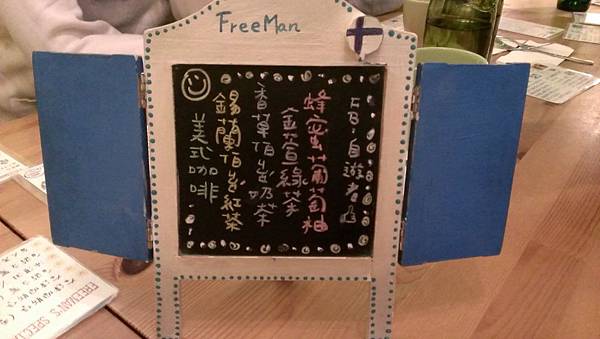 FreeMan
FB:自遊者
蜂蜜葡萄柚
金萱綠茶
香草伯爵奶茶
錫蘭伯爵紅茶
美式咖啡
FREEMAN'S